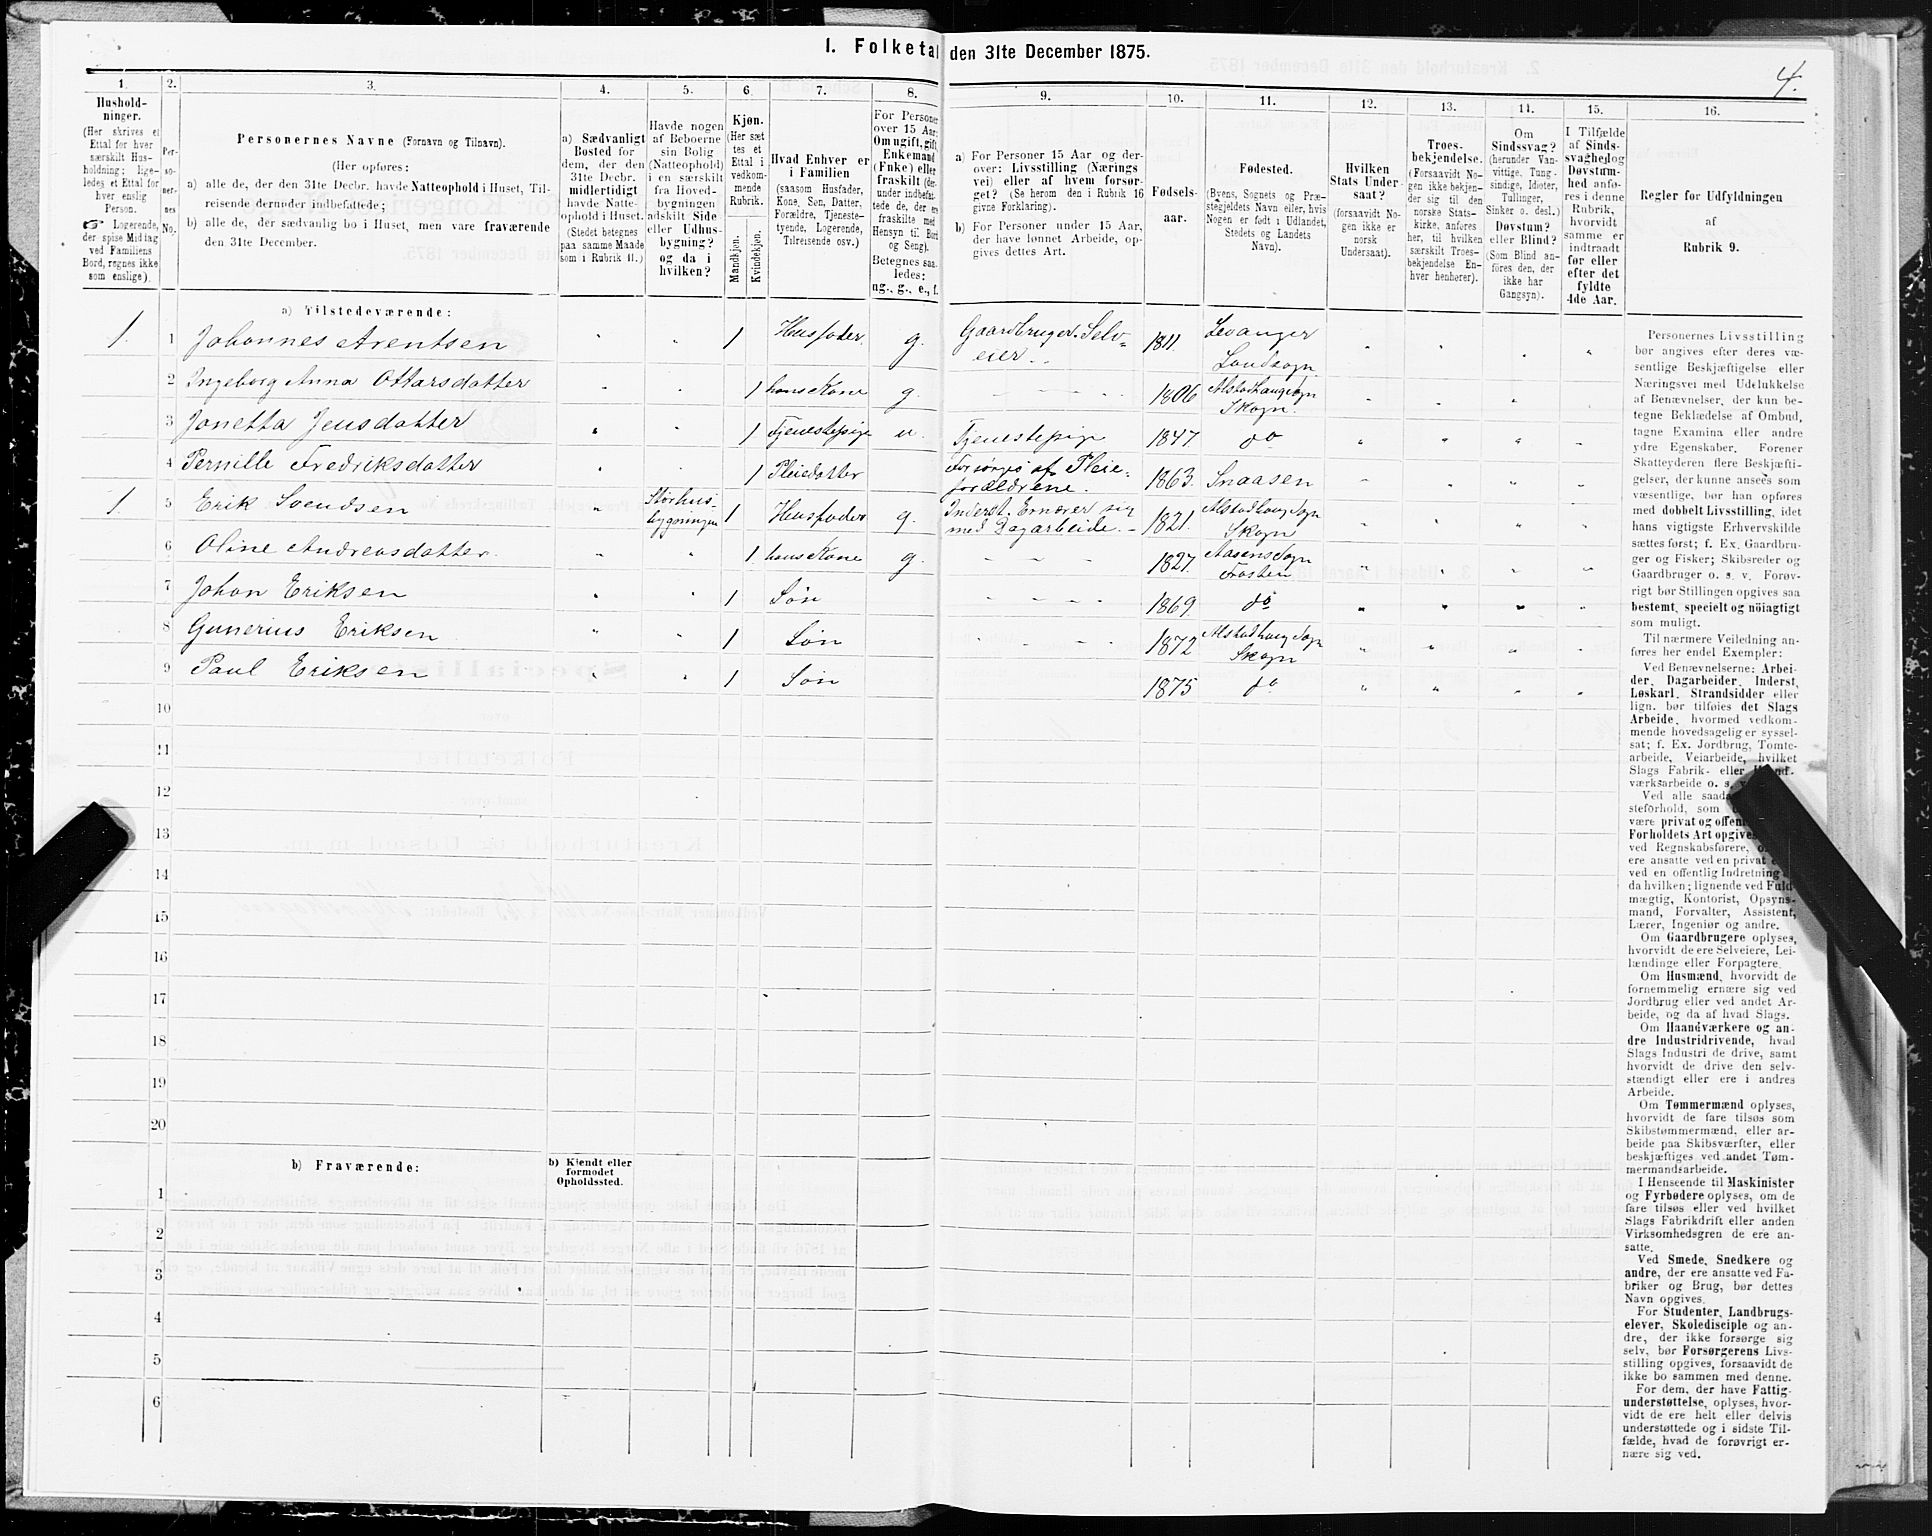 I. Folketal den 31te December 1875.
4.
1. 2. 3. 4. 5. 6. 7. 8. 9. 10. 11. 12. 13. 14. 15. 16.
Hushold-
ninger.
(Her skrives et
Ettal for hver
særskilt Hus-
holdning; lige-
ledes et Ettal for
hver enslig
Person.
Logerende,
der spise Middag
ved Familiens
Bord, regnes ikke
som enslige).
Per-
so-
ner-
nes
No.
Personernes Navne (Fornavn og Tilnavn).
(Her opføres:
a) alle de, der den 31te Decbr. havde Natteophold i Huset, Til-
reisende derunder indbefattede;
b) alle de, der sædvanlig bo i Huset, men vare fraværende
den 31te December.
a) Sædvanligt
Bosted for
dem, der den
31te Decbr.
midlertidigt
havde Natte-
ophold i Huset.
(Stedet betegnes
paa samme Maade
som i Rubrik 11.)
Havde nogen
af Beboerne
sin Bolig
(Natteophold)
i en særskilt
fra Hoved-
bygningen
adskilt Side
eller Udhus-
bygning?
og da i
hvilken?
Kjøn.
(Her sæt-
tes et
Ettal i
vedkom-
mende
Rubrik.
Mandkjøn.
Kvindekjøn.
Hvad Enhver er
i Familien
(saasom Husfader,
Kone, Søn, Datter,
Forældre, Tjeneste-
tyende, Logerende,
Tilreisende osv.)
For Personer
over 15 Aar:
Om ugift, gift,
Enkemand
(Enke) eller
fraskilt (der-
under indbefat-
tede de, der ere
fraskilte med
Hensyn til Bord
og Seng).
Betegnes saa-
ledes:
ug., g., e., f.
a) For Personer 15 Aar og der-
over: Livsstilling (Nærings-
vei) eller af hvem forsør-
get? (Se herom den i Rubrik 16
givne Forklaring).
b) For Personer under 15 Aar,
der have lønnet Arbeide, op-
gives dettes Art.
Fødsels-
aar.
Fødested.
(Byens, Sognets og Præ-
stegjeldets Navn eller, hvis
Nogen er født i Udlandet,
Stedets og Landets
Navn).
Hvilken
Stats Under-
saat?
(forsaavidt No-
gen ikke er
norsk
Undersaat).
Troes-
bekjendelse.
(Forsaavidt No-
gen ikke bekjen-
der sig til den
norske Stats-
kirke, anføres
her, til hvilken
særskilt Troes-
bekjendelse En-
hver henhører).
Om
Sindssvag?
(herunder Van-
vittige, Tung-
sindige, Idioter,
Tullinger,
Sinker o. desl.)
Døvstum?
eller Blind?
(Som Blind an-
føres den, der
ikke har
Gangsyn).
I Tilfælde
af Sinds-
svaghed og
Døvstum-
hed anfø-
res i denne
Rubrik,
hvorvidt
samme er
indtraadt
før eller
efter det
fyldte
4de Aar.
Regler for Udfyldningen
af
Rubrik 9.
a) Tilstedeværende:
1. 1 Johannes Arentsen " " 1 Husfader. g. Gaardbruger. Selv=
eier. 1811. Levanger
Landsogn. " " " "
2 Ingeborg Anna Ottarsdatter " " 1 hans Kone g. - - - 1806 Alstadhaug Sogn
Skogn. " " " "
3 Janetta Jensdatter " " 1 Tjenestepige u. Tjenestepige 1847 do " " " "
4 Pernille Fredriksdatter " " 1 Pleiedatter Forsørges af Pleie=
forældrene. 1863. Snaasen " " " "
1 5 Erik Svendsen " Størhus-
bygningen 1 Husfader g. Inderst. Ernærer sig
med Dagarbeide. 1821. Alstadhoug Sogn
Skogn " " " "
6 Oline Andreasdatter. " " 1 hans Kone g. - - - 1827. Aasens Sogn
Frosten " " " "
7 Johan Eriksen " " 1 Søn - - - 1869. do " " " "
8 Gunerius Eriksen " " 1 Søn - - - 1872 Alstadhoug Sogn
Skogn " " " "
9 Paul Eriksen " " 1 Søn 1875 do " " " "
10
11
12
13
14
15
16
17
18
19
20
b) Fraværende:
b) Kjendt eller
formodet
Opholdssted.
1
2
3
4
5
6
Personernes Livsstilling
bør angives efter deres væ-
sentlige Beskjæftigelse eller
Næringsvei med Udelukkelse
af Benævnelser, der kun be-
tegne Beklædelse af Ombud,
tagne Examina eller andre
ydre Egenskaber. Forener
Skatteyderen flere Beskjæfti-
gelser, der kunne ansees som
væsentlige, bør han opføres
med dobbelt Livsstilling, idet
hans vigtigste Erhvervskilde
sættes først; f. Ex. Gaardbru-
ger og Fisker; Skibsreder og
Gaardbruger o. s. v. Forøv-
rigt bør Stillingen opgives saa
bestemt, specielt og nöiagtigt
som muligt.
Til nærmere Veiledning an-
føres her endel Exempler:
Ved Benævnelserne: Arbei-
der, Dagarbeider, Inderst,
Løskarl, Strandsidder eller
lign. bør tilføies det Slags
Arbeide, hvormed vedkom-
mende hovedsagelig er syssel-
sat; f. Ex. Jordbrug, Tomte-
arbeide, Veiarbeide, hvilket
Slags Fabrik- eller Haand-
værksarbeide o. s. v.
Ved alle saadanne
steforhold, som
være privat og offentlig
Forholdets Art opgives
ved Regnskabsførere,
ere ansatte ved en privat
ved en offentlig Indretning
da hvilken; lignende ved Fuld-
mægtig, Kontorist, Opsyns-
mand, Forvalter, Assistent,
Lærer, Ingeniør og andre.
Om Gaardbrugere oplyses,
hvorvidt de ere Selveiere, Lei-
lændinge eller Forpagtere.
Om Husmænd, hvorvidt de
fornemmelig ernære sig ved
Jordbrug eller ved andet Ar-
beide, og da af hvad Slags.
Om Haandværkere og an-
dre Industridrivende, hvad
Slags Industri de drive, samt
hvorvidt de drive den selv-
stændigt eller ere i andres
Arbeide.
Om Tømmermænd oplyses,
hvorvidt de fare tilsøs som
Skibstømmermænd, eller ar-
beide paa Skibsværfter, eller
beskjæftiges ved andet Tøm-
mermandsarbeide.
I Henseende til Maskinister
og Fyrbødere oplyses, om de
fare tilsøs eller ved hvilket
Slags Fabrikdrift eller anden
Virksomhedsgren de ere an-
satte.
Ved Smede, Snedkere og
andre, der ere ansatte ved Fa-
briker og Brug, bør dettes
Navn opgives.
For Studenter, Landbrugs-
elever, Skoledisciple og an-
dre, der ikke forsørge sig
selv, bør Forsørgerens Livs-
stilling opgives, forsaavidt de
ikke bo sammen med denne.
For dem, der have Fattig-
understøttelse, oplyses, hvor-
vidt de ere helt eller delvis
understøttede og i sidste Til-
fælde, hvad de forøvrigt er-
nære sig ved.